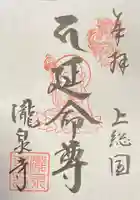 奉拝
上総国
延命尊
瀧泉寺